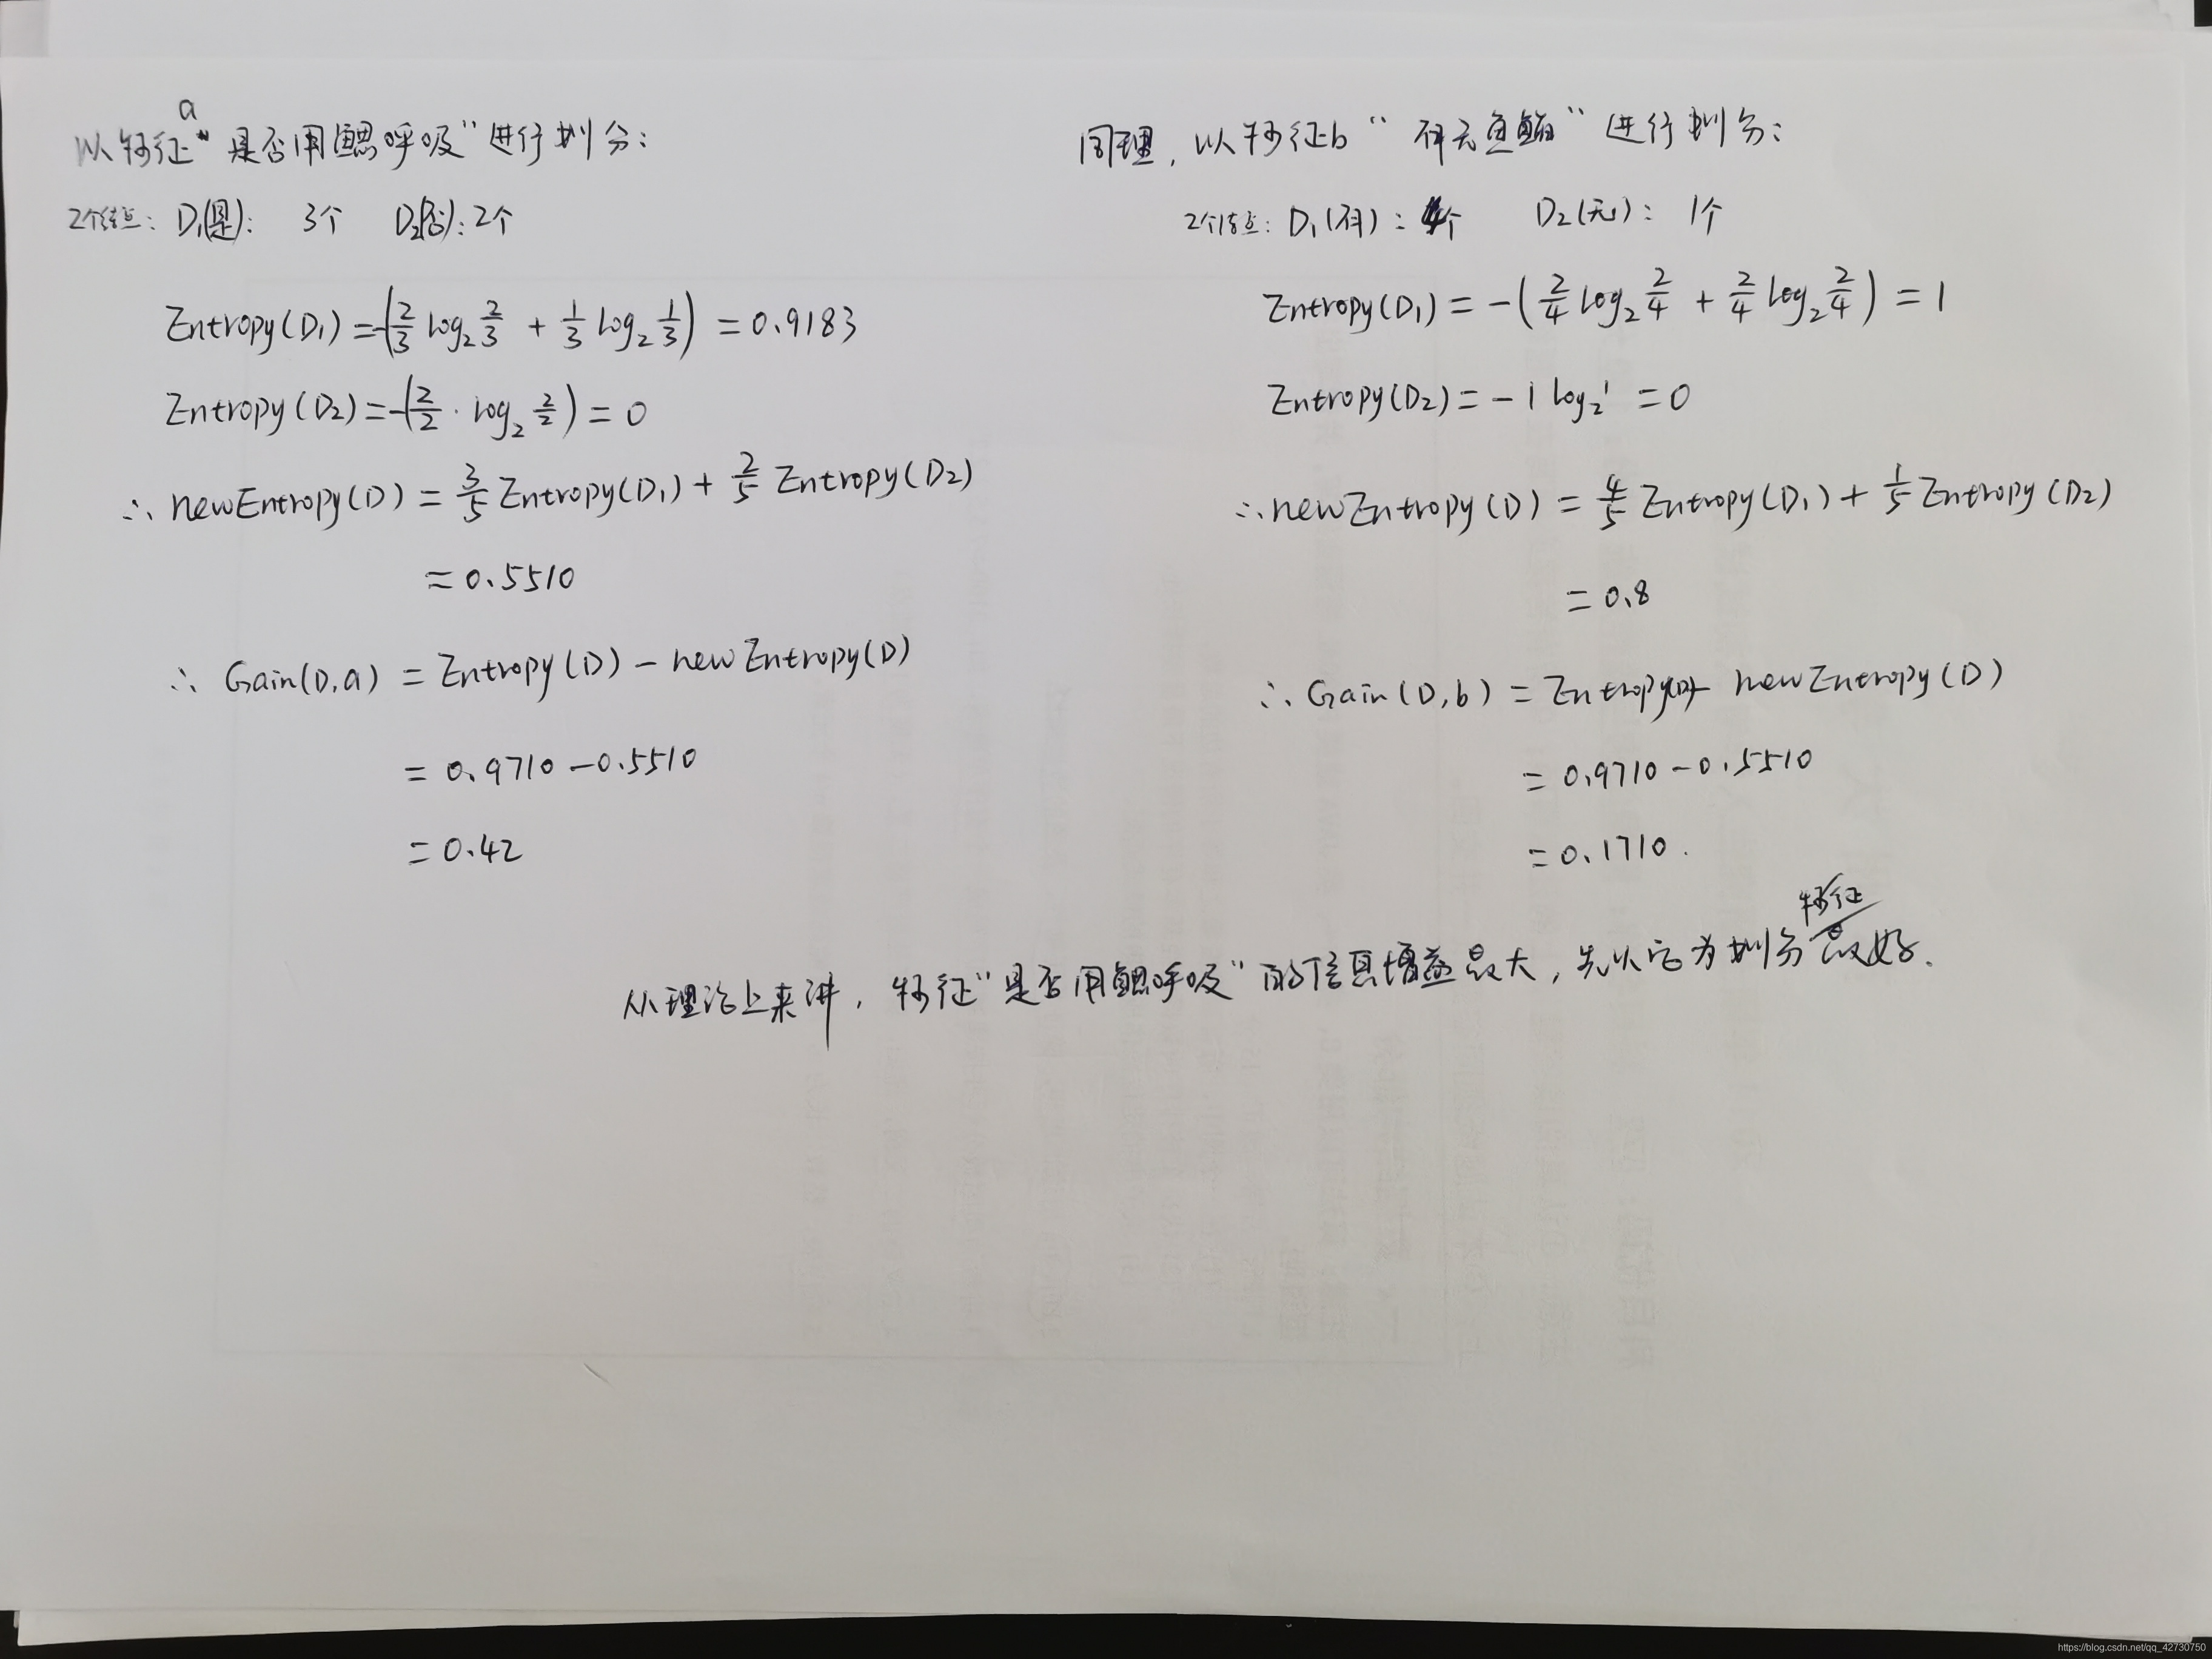 以特征a"是否用鳃呼吸"进行划分:
2个结点: D₁(是): 3个 D₂(否): 2个
Entropy(D₁) = -(2/3 log₂ 2/3 + 1/3 log₂ 1/3) = 0.9183
Entropy(D₂) = -(2/2 · log₂ 2/2) = 0
∴ newEntropy(D) = 3/5 Entropy(D₁) + 2/5 Entropy(D₂)
= 0.5510
∴ Gain(D,a) = Entropy(D) - newEntropy(D)
= 0.9710 - 0.5510
= 0.42
同理, 以特征b "有无鱼鳍" 进行划分:
2个结点: D₁(有): 4个 D₂(无): 1个
Entropy(D₁) = -(2/4 log₂ 2/4 + 2/4 log₂ 2/4) = 1
Entropy(D₂) = -1 log₂ 1 = 0
∴ newEntropy(D) = 4/5 Entropy(D₁) + 1/5 Entropy(D₂)
= 0.8
∴ Gain(D,b) = Entropy(D) - newEntropy(D)
= 0.9710 - 0.5510
= 0.1710.
从理论上来讲, 特征"是否用鳃呼吸"的信息增益最大, 先以它为划分特征最好.
https://blog.csdn.net/qq_42730750